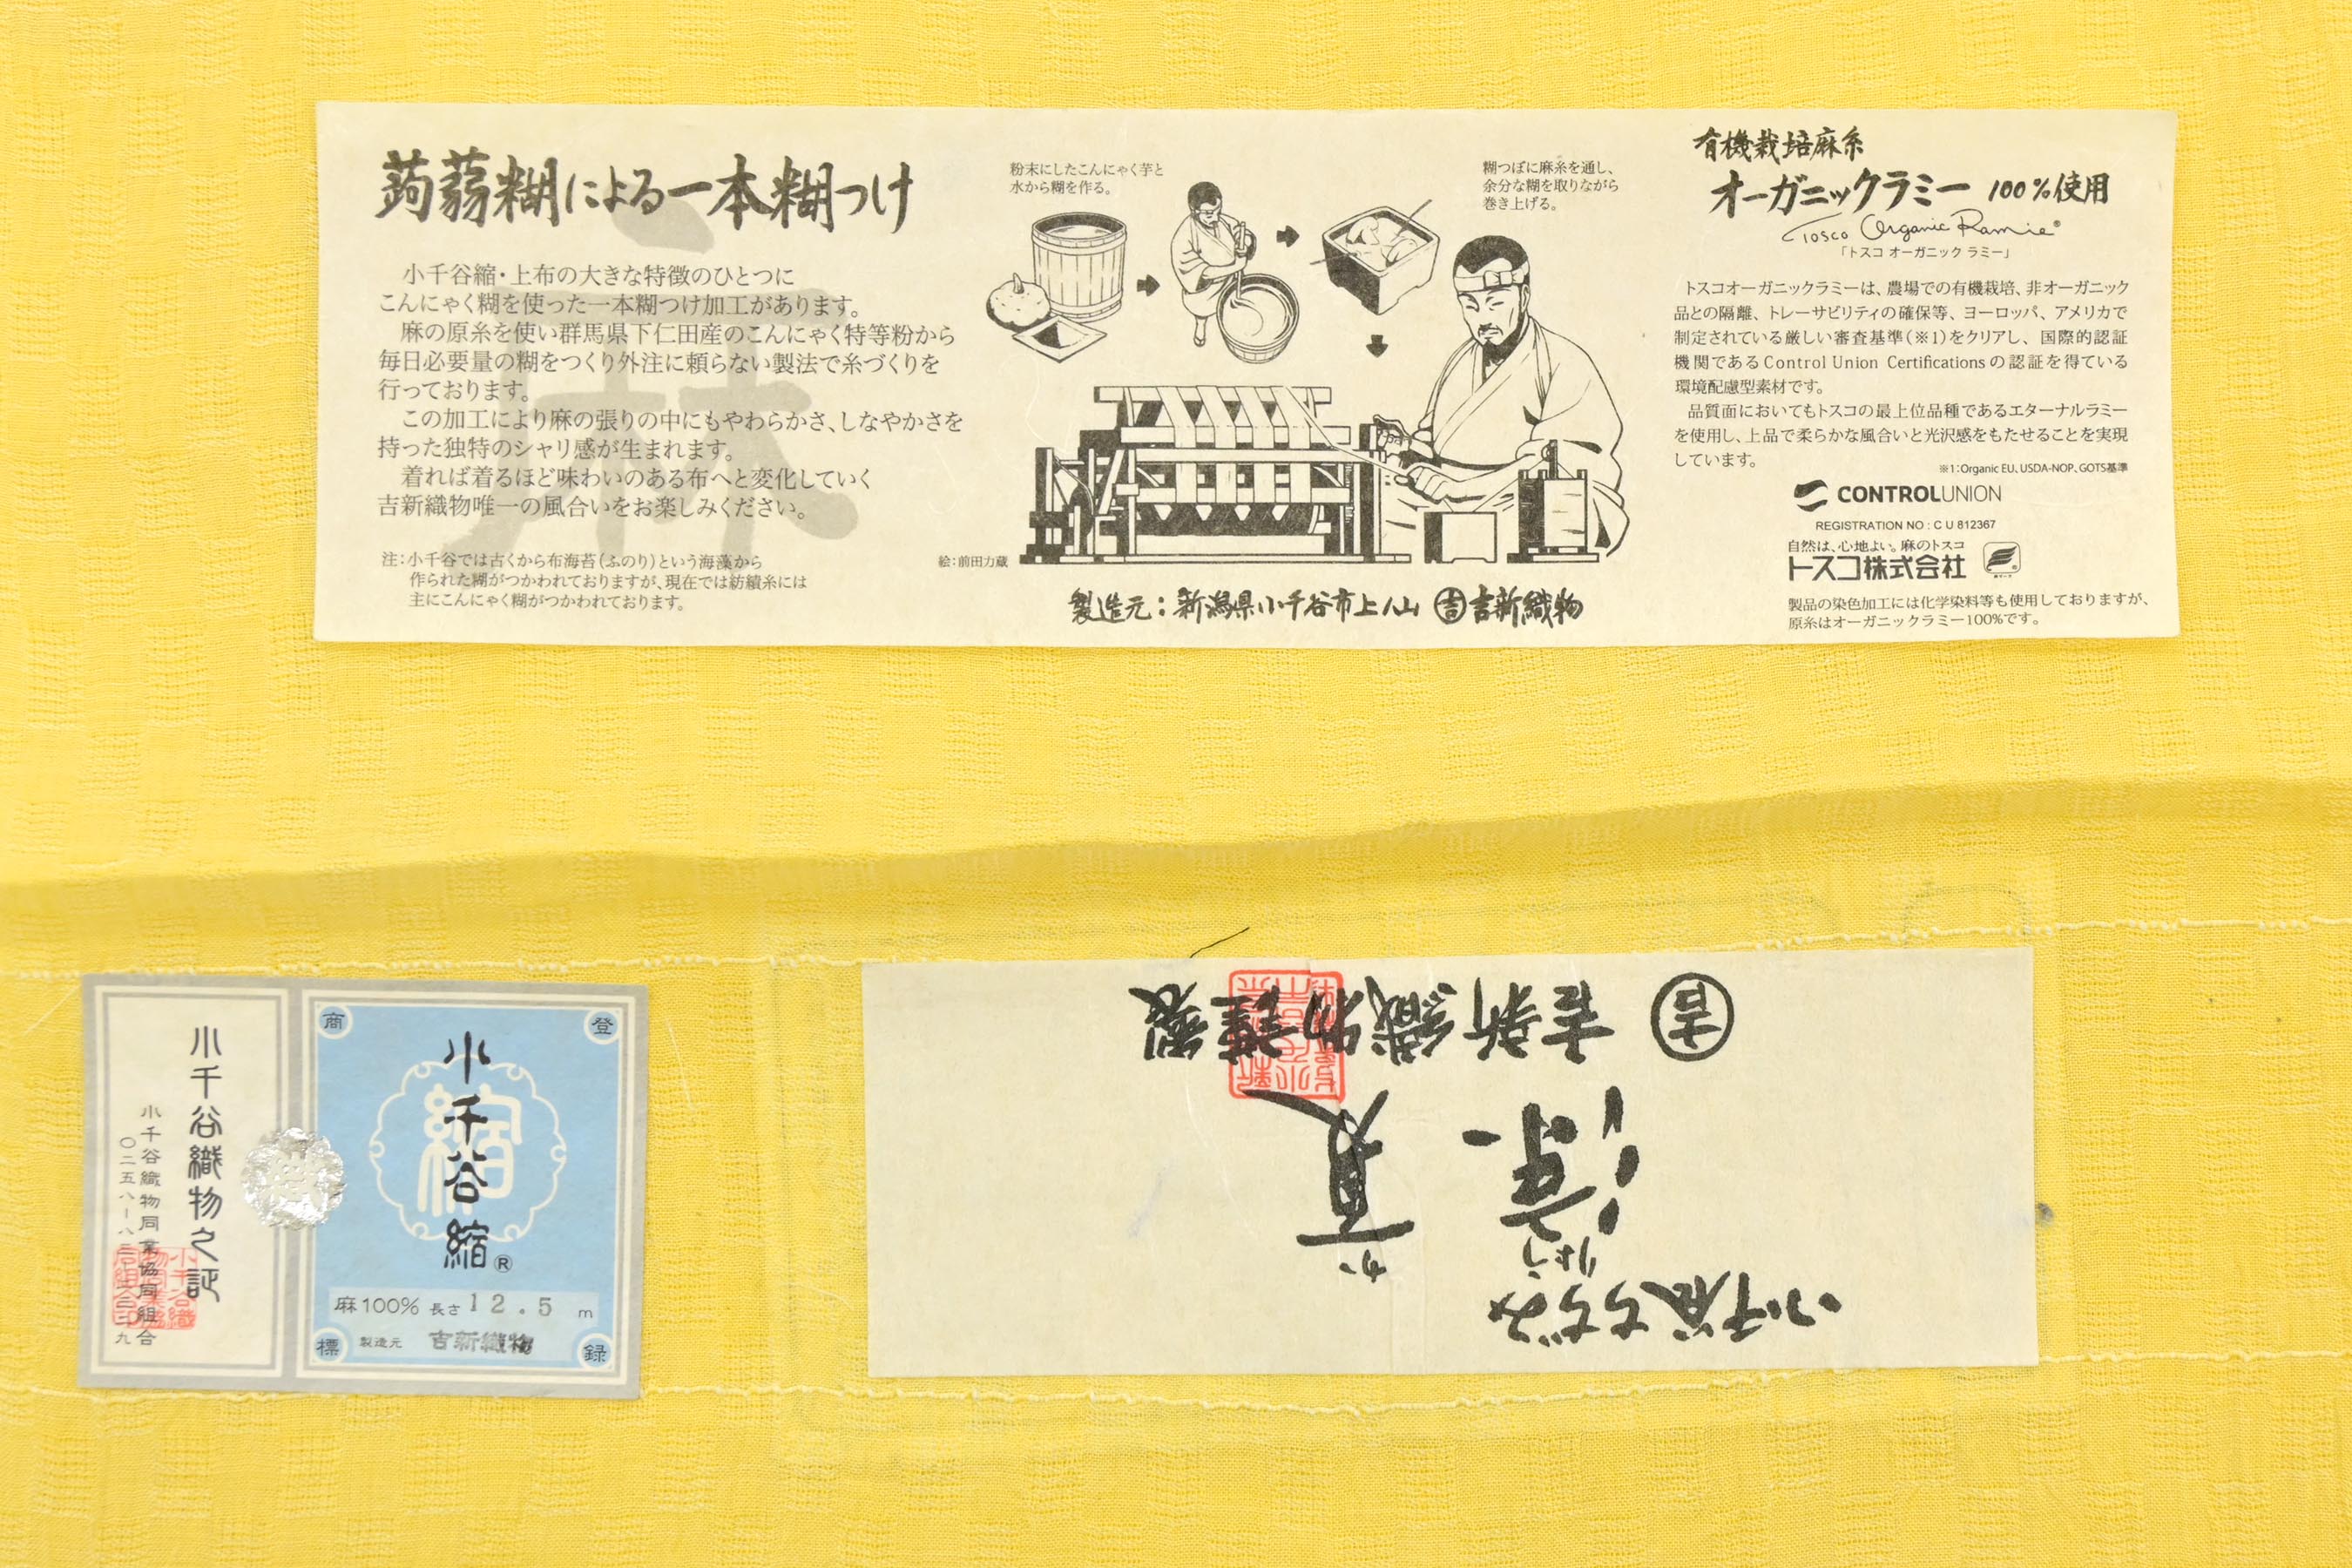 蒟蒻糊による一本糊つけ
小千谷縮・上布の大きな特徴のひとつに
こんにゃく糊を使った一本糊つけ加工があります。
麻の原糸を使い群馬県下仁田産のこんにゃく特等粉から
毎日必要量の糊をつくり外注に頼らない製法で糸づくりを
行っております。
この加工により麻の張りの中にもやわらかさ、しなやかさを
持った独特のシャリ感が生まれます。
着れば着るほど味わいのある布へと変化していく
吉新織物唯一の風合いをお楽しみください。
注:小千谷では古くから布海苔(ふのり)という海藻から
作られた糊がつかわれておりますが、現在では紡績糸には
主にこんにゃく糊がつかわれております。
麻
粉末にしたこんにゃく芋と
水から糊を作る。
糊つぼに麻糸を通し、
余分な糊を取りながら
巻き上げる。
絵:前田力蔵
製造元:新潟県小千谷市上ノ山 吉 吉新織物
有機栽培麻糸
オーガニックラミー 100%使用
Tosco Organic Ramie®
「トスコ オーガニック ラミー」
トスコオーガニックラミーは、農場での有機栽培、非オーガニック
品との隔離、トレーサビリティの確保等、ヨーロッパ、アメリカで
制定されている厳しい審査基準(※1)をクリアし、国際的認証
機関であるControl Union Certificationsの認証を得ている
環境配慮型素材です。
品質面においてもトスコの最上位品種であるエターナルラミー
を使用し、上品で柔らかな風合いと光沢感をもたせることを実現
しています。
※1:Organic EU、USDA-NOP、GOTS基準
CONTROLUNION
REGISTRATION NO : C U 812367
自然は、心地よい。麻のトスコ
トスコ株式会社
製品の染色加工には化学染料等も使用しておりますが、
原糸はオーガニックラミー100%です。
小千谷織物之証
小千谷織物同業協同組合
〇二五八-八三-二三二九
登
録
商
標
縮
小千谷縮®
麻100% 長さ12.5 m
製造元 吉新織物
小千谷ちぢみ
涼一
りょう
夏
か
吉 吉新織物謹製